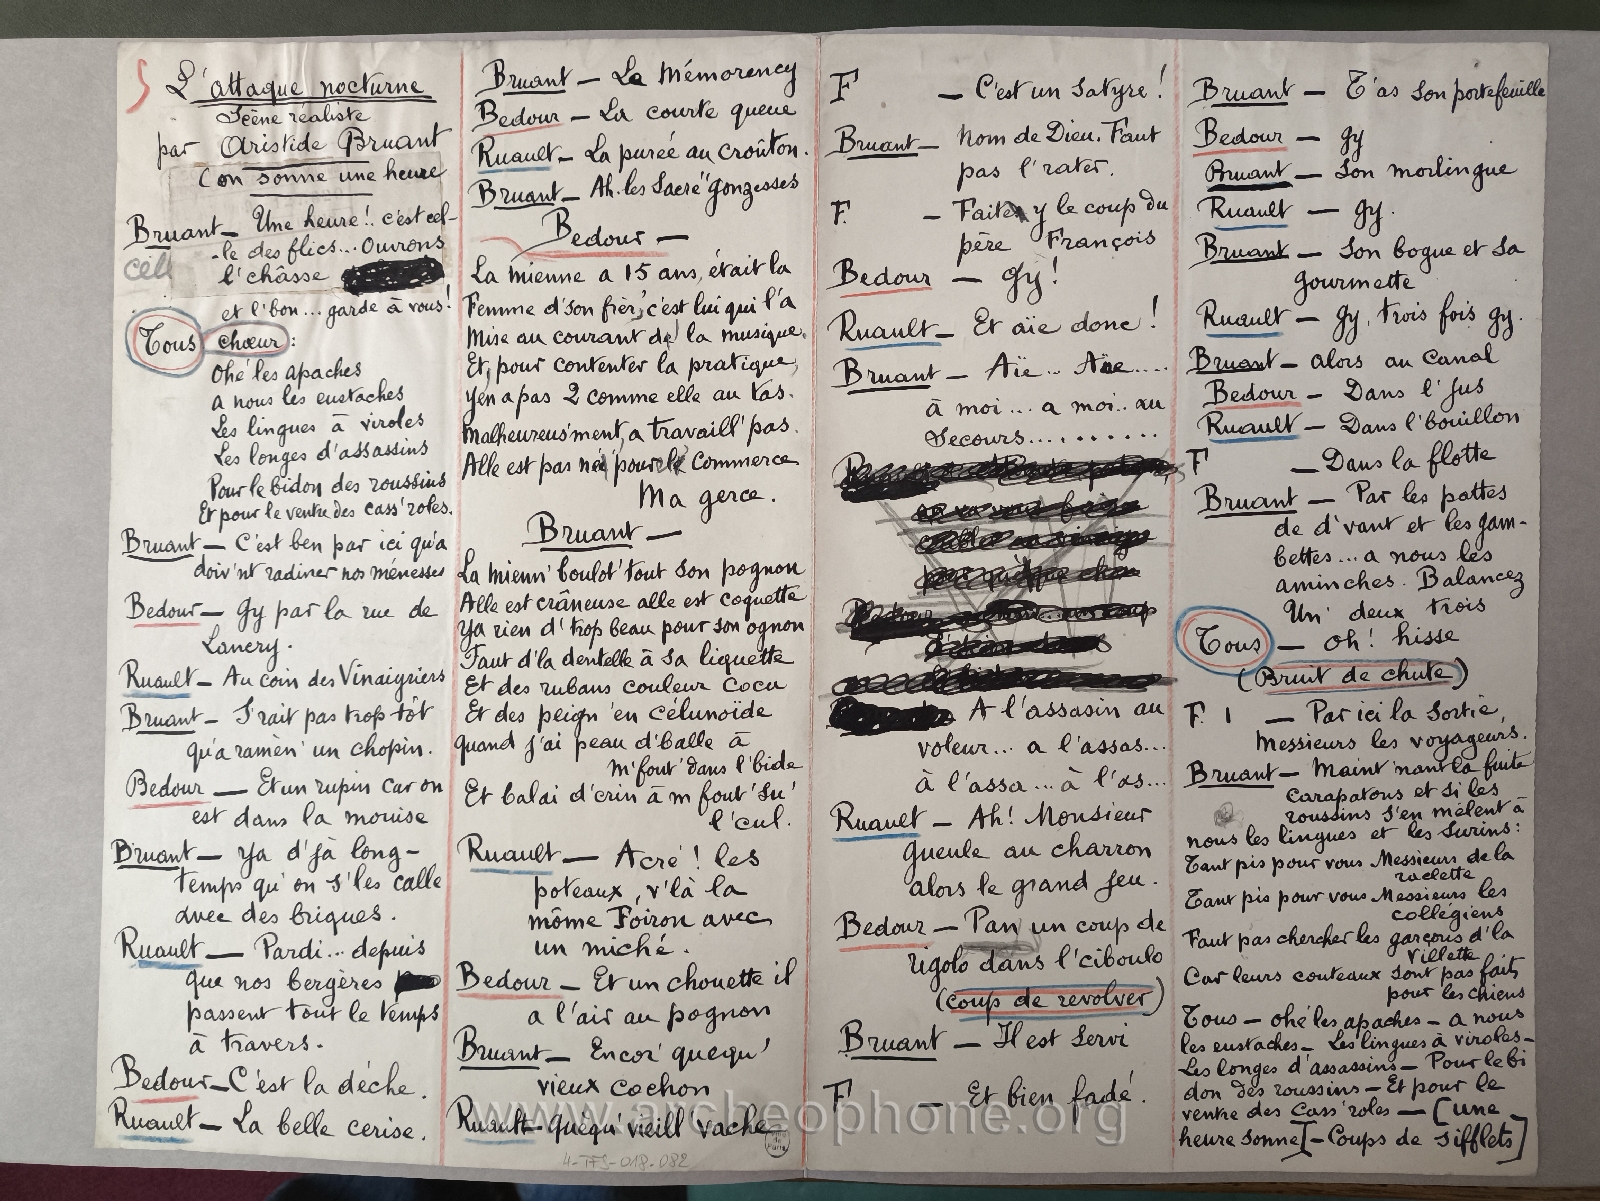 L'attaque nocturne
Scène réaliste
par Aristide Bruant
(on sonne une heure
Bruant — Une heure!.. c'est cel-
-le des flics... Ouvrons
l'châsse
et l'bon... garde à vous!
Tous chœur :
Ohé les apaches
a nous les eustaches
Les lingues à viroles
Les longes d'assassins
Pour le bidon des roussins
Et pour le ventre des cass'roles.
Bruant — C'est ben par ici qu'a
doiv'nt radiner nos ménesses
Bedour — Gy par la rue de
Lancry.
Ruault — Au coin des Vinaigriers
Bruant — S'rait pas trop tôt
qu'a ramèn' un chopin.
Bedour — Et un rupin car on
est dans la mouise
Bruant — Ya d'jà long-
temps qu'on s'les calle
avec des briques.
Ruault — Pardi... depuis
que nos bergères
passent tout le temps
à travers.
Bedour — C'est la dèche.
Ruault — La belle cerise.
Bruant — La Mémorency
Bedour — La courte queue
Ruault — La purée au croûton.
Bruant — Ah. les Sacré' gonzesses
Bedour —
La mienne a 15 ans, était la
Femme d'son frèr', c'est lui qui l'a
Mise au courant de la musique.
Et, pour contenter la pratique,
Y'en a pas 2 comme elle au tas.
Malheureus'ment, a travaill' pas.
Alle est pas née pour le Commerce
Ma gerce.
Bruant —
La mienn' boulot' tout son pognon
Alle est crâneuse alle est coquette
Ya rien d'trop beau pour son ognon
Faut d'la dentelle à sa liquette
Et des rubans couleur cocu
Et des peign' en célunoïde
quand j'ai peau d'balle à
m'fout' dans l'bide
Et balai d'crin à m'fout' su'
l'cul.
Ruault — Acré! les
poteaux, v'là la
môme Foiron avec
un miché.
Bedour — Et un chouette il
a l'air au pognon
Bruant — Encor' quequ'
vieux cochon
Ruault — Quequ' vieill' vache
4-TFS-018-082
F — C'est un Satyre!
Bruant — Nom de Dieu. Faut
pas l'rater.
F. — Faites y le coup du
père François
Bedour — Gy!
Ruault — Et aïe donc!
Bruant — Aïe... Aïe....
à moi... a moi.. au
Secours..........
A l'assasin au
voleur... a l'assas...
à l'assa... à l'as...
Ruault — Ah! Monsieur
gueule au charron
alors le grand jeu.
Bedour — Pan un coup de
rigolo dans l'ciboulo
(coup de revolver)
Bruant — Il est servi
F — Et bien fadé.
Bruant — T'as son portefeuille
Bedour — Gy
Bruant — Son morlingue
Ruault — Gy.
Bruant — Son bogue et sa
gourmette
Ruault — Gy, trois fois gy.
Bruant — alors au Canal
Bedour — Dans l'jus
Ruault — Dans l'bouillon
F — Dans la flotte
Bruant — Par les pattes
de d'vant et les gam-
bettes... a nous les
aminches. Balancez
Un' deux trois
Tous — Oh! hisse
(Bruit de chute)
F. — Par ici la sortie,
Messieurs les voyageurs.
Bruant — Maint'nant la fuite
carapatons et si les
roussins s'en mèlent à
nous les lingues et les surins :
Tant pis pour vous Messieurs de la
raclette
Tant pis pour vous Messieurs les
collégiens
Faut pas chercher les garçons d'la
Villette
Car leurs couteaux sont pas faits
pour les chiens
Tous — ohé les apaches — a nous
les eustaches — Les lingues à viroles —
Les longes d'assassins — Pour le bi
don des roussins — Et pour le
ventre des Cass'roles — [une
heure sonne] — Coups de sifflets]
www.archeophone.org